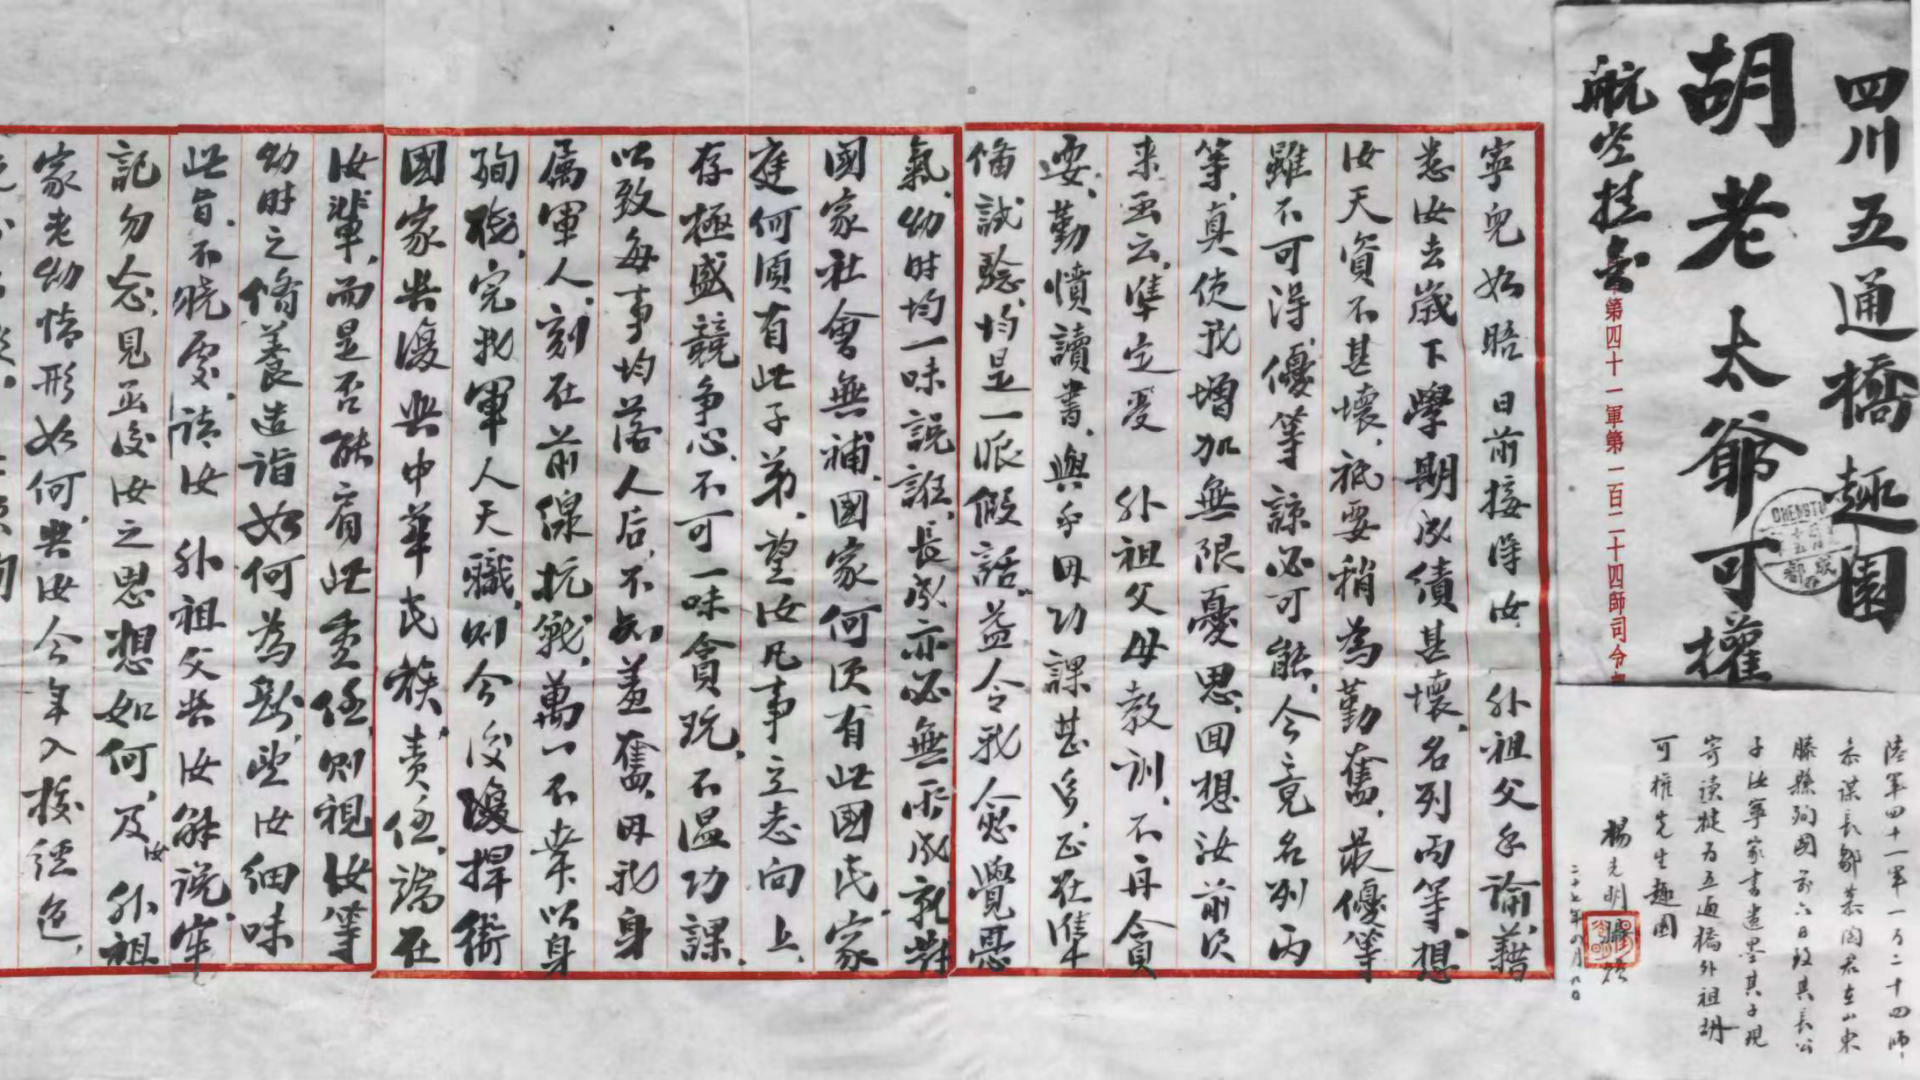 四川五通橋趣園
胡老太爺可權
航空挂號
第四十一軍第一百二十四師司令
CHENGTU
成都
陸軍四十一軍一百二十四師
參謀長鄒慕陶君在山東
滕縣殉國前六日致其長公
子汝寧家書遺墨其子現
寄讀犍為五通橋外祖胡
可權先生趣園
楊光明
二十七年八月八日
寧兒如晤日前接得汝外祖父手諭藉
悉汝去歲下學期成績甚壞名列丙等想
汝天資不甚壞祇要稍為勤奮最優等
雖不可得優等諒必可能今竟名列丙
等真使我增加無限憂思回想汝前次
來函云準定受外祖父母教訓不再貪
耍勤憤讀書與乎毋功課甚多正在準
備試驗均是一派假話益令我忿覺惡
氣幼時均一味說誑長成亦必無所成就對
國家社會無補國家何須有此國民家
庭何須有此子弟望汝凡事立志向上
存極盛競爭心不可一味貪玩不溫功課
以致每事均落人后不知羞奮毋我身
屬軍人刻在前線抗戰萬一不幸以身
殉職完我軍人天職則今後復捍衛
國家與復興中華民族責任端在
汝輩而是否能肩此重任則視汝等
幼時之脩養造詣如何為斷望汝細味
此旨不曉處請汝外祖父與汝解說牢
記勿忘見函後汝之思想如何及汝外祖
家老幼情形如何與汝今年入校經過